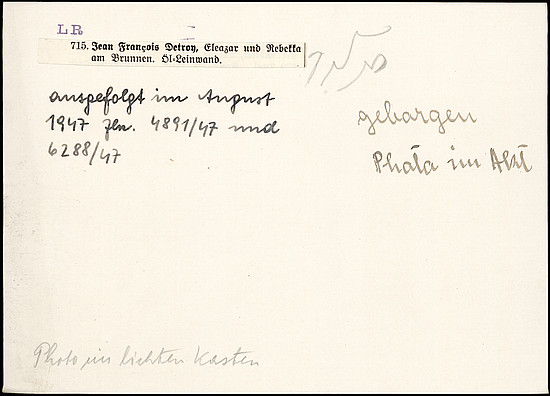 LR
715. Jean François Detroy, Eleazar und Rebekka
am Brunnen. Öl-Leinwand.
ausgefolgt im August
1947 Zln. 4891/47 und
6288/47
geborgen
Photo im Akt
Photo im lichten Kasten